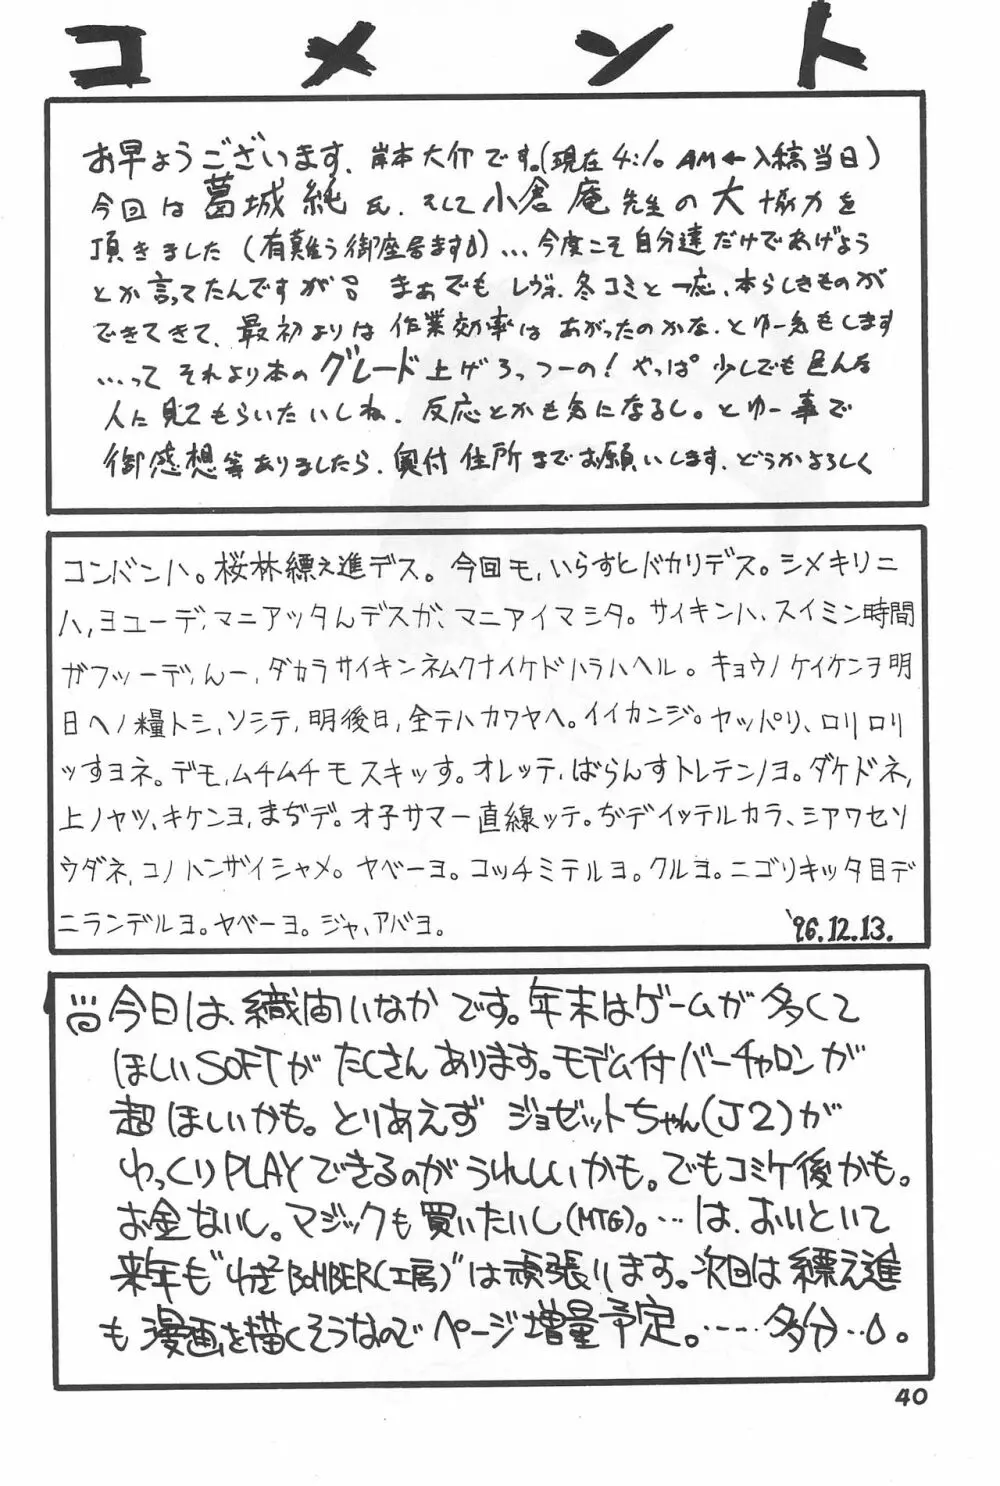 コメント
お早ようございます、岸本大介です。(現在4:10 AM←入稿当日)
今回は葛城純氏、そして小倉庵先生の大協力を
頂きました(有難う御座居ます)…今度こそ自分達だけであげよう
とか言ってたんですが まぁでも レヴォ、冬コミと一応、本らしきものが
できてきて、最初よりは作業効率はあがったのかな、とゆー気もします
…って それより本のグレード上げろっつーの! やっぱ少しでも色んな
人に見てもらいたいしね、反応とかも気になるし。とゆー事で
御感想等ありましたら、奥付住所までお願いします、どうかよろしく
コンバンハ。桜林縹え進デス。今回モ,いらすとバカリデス。シメキリニ
ハ,ヨユーデ,マニアッタんデスガ、マニアイマシタ。サイキンハ、スイミン時間
ガフツーデ,んー,ダカラサイキンネムクナイケドハラハヘル。キョウノケイケンヲ明
日ヘノ糧トシ,ソシテ,明後日,全テハカワヤヘ。イイカンジ。ヤッパリ,ロリロリ
ッすヨネ。デモ,ムチムチモスキッす。オレッテ,ばらんすトレテンノヨ。ダケドネ,
上ノヤツ、キケンヨ,まぢデ。オ子サマー直線ッテ。ぢデイッテルカラ、シアワセソ
ウダネ,コノハンザイシャメ。ヤベーヨ。コッチミテルヨ。クルヨ。ニゴリキッタ目デ
ニランデルヨ。ヤベーヨ。ジャ,アバヨ。 '96.12.13.
今日は、織宙いなかです。年末はゲームが多くて
ほしいSOFTがたくさんあります。モデム付バーチャロンが
超ほしいかも。とりあえずジョゼットちゃん(J2)が
ゆっくりPLAYできるのがうれしいかも。でもコミケ後かも。
お金ないし。マジックも買いたいし(MTG)。…は、おいといて
来年も"わざBOMBER(工房)"は頑張ります。次回は縹え進
も漫画を描くそうなのでページ増量予定。……多分…。
40